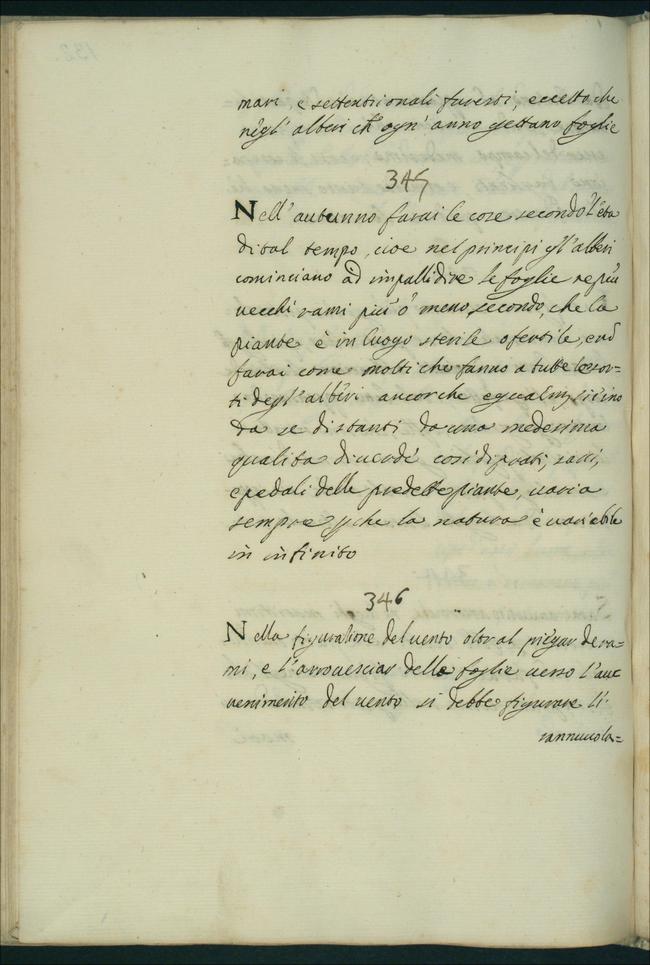 mari, e settentrionali furenti, eccetto che
negl' alberi ch̃ ogn' anno gettano foglie
345
Nell' autunno farai le cose secondo l'età
di tal tempo, cioe nel principi gl' alberi
cominciano ad impallidire le foglie ne più
vecchi rami più ò meno secondo, che la
piante è in luogo sterile o fertile, e nõ
farai come molti che fanno a tutte le sor-
ti degl' alberi ancorche egualm.
da se distanti da una medesima
qualita di verde cosi di prati, sassi,
e pedali delle predette piante, varia
sempre p che la natura è variabile
in infinito
346
Nella figuratione del vento oltr al piegar de ra=
mi, e l'arrovesciar delle foglie verso l'avve
venimento del vento si debbe figurare li
rannuvola=